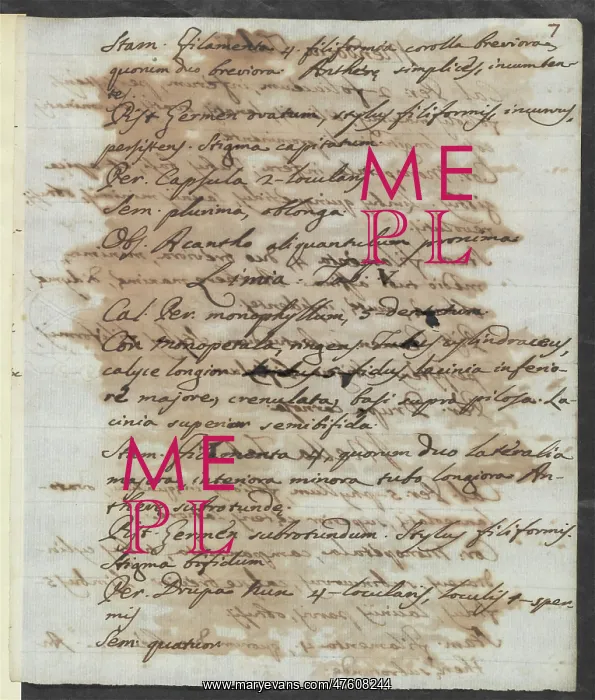 7
Stam. Filamenta 4. filiformia corolla breviora,
quorum duo breviora. Antheræ simplices, incumben-
tes.
Pist. Germen ovatum, stylus filiformis, incurvus,
persistens. Stigma capitatum.
Per. Capsula 2-locularis
Sem. plurima, oblonga
Obs. Acantho aliquantulum proxima
Cal. Per. monophyllum, 5-dentatum.
Cor. monopetala, ringens. Tubus cylindraceus,
calyce longior lacinia inferio-
re majore, crenulata, basi supra pilosa. La-
cinia superior semibifida.
Stam. Filamenta 4. quorum duo lateralia
interiora minora tubo longiora. An-
theræ subrotundæ.
Pist. Germen subrotundum. Stylus filiformis.
Stigma bifidum
Per. Drupa Nux 4-locularis, loculis 1-sper-
mis
Sem. quatuor
ME
PL
ME
PL
www.maryevans.com/47608244